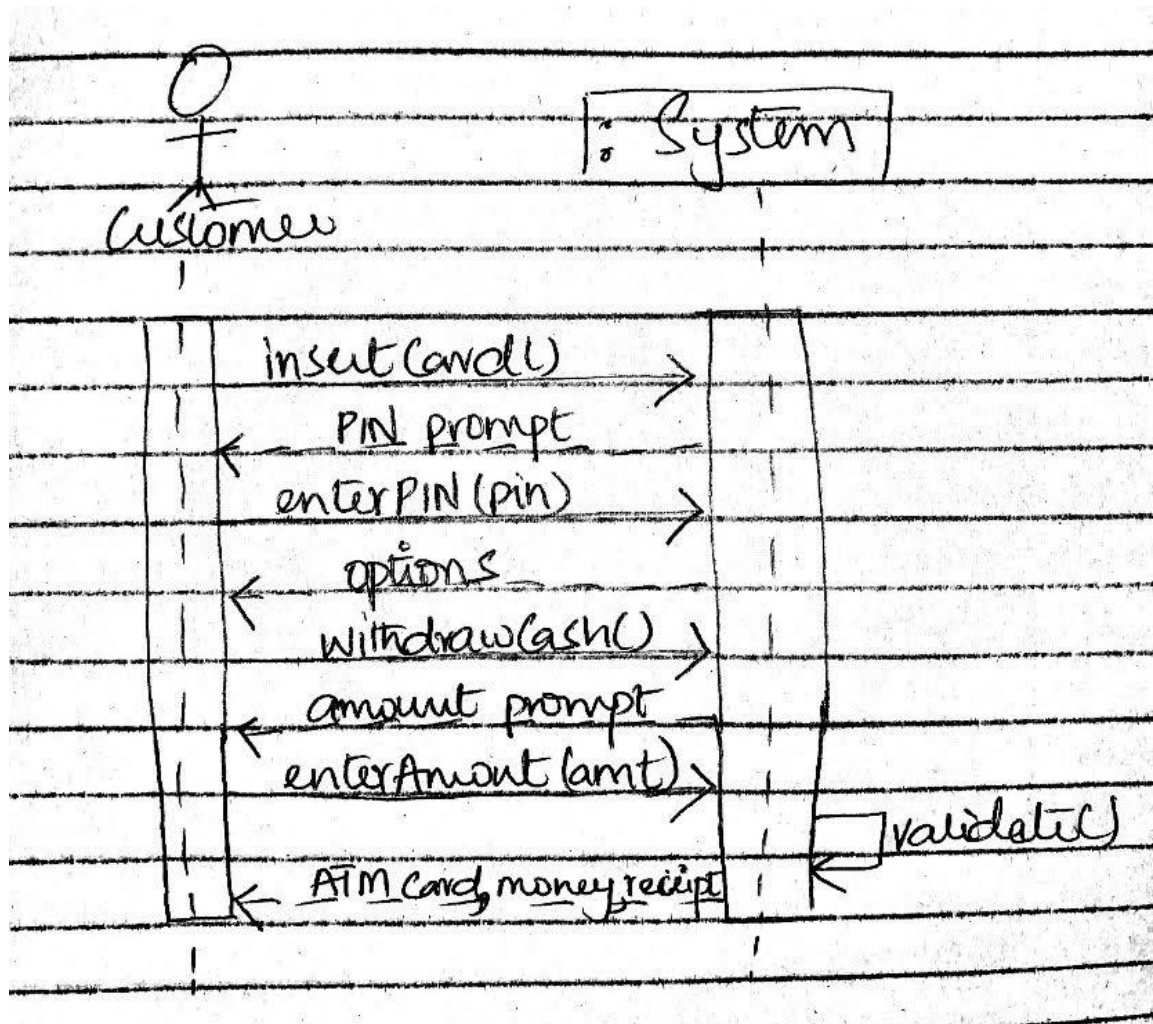 : System
Customer
insertCard()
PIN prompt
enterPIN(pin)
options
withdrawCash()
amount prompt
enterAmount(amt)
validate()
ATM Card, money, receipt